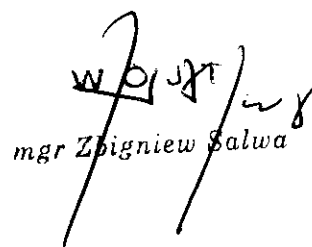 WÓJT
mgr Zbigniew Salwa